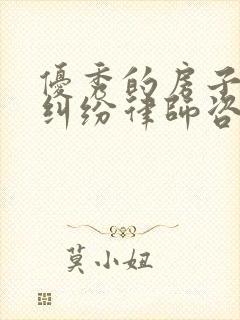 優秀的房子
糾紛律師咨
莫小妞